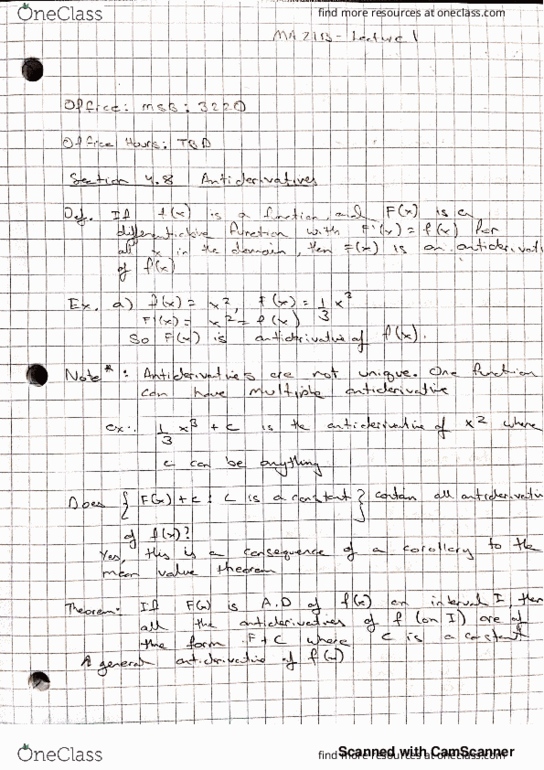 OneClass
find more resources at oneclass.com
MA 2153 - Lecture 1
Office: MSB: 3220
Office Hours: TBD
Section 4.8 Antiderivatives
Def. If f(x) is a function and F(x) is a
differentiable function with F'(x) = f(x) for
all x in the domain, then F(x) is an antiderivati
of f(x)
Ex. a) f(x) = x², F(x) = 1/3 x³
F'(x) = x² = f(x)
So F(x) is antiderivative of f(x).
Note*: Antiderivatives are not unique. One function
can have multiple antiderivative
ex: 1/3 x³ + c is the antiderivative of x² where
c can be anything
Does { F(x) + c : c is a constant } contain all antiderivativ
of f(x)?
Yes, this is a consequence of a corollary to the
mean value theorem
Theorem: If F(x) is A.D of f(x) on interval I, then
all the antiderivatives of f (on I) are of
the form F + C where C is a constant
A general antiderivative of f(x)
OneClass
find more resources at oneclass.com
Scanned with CamScanner